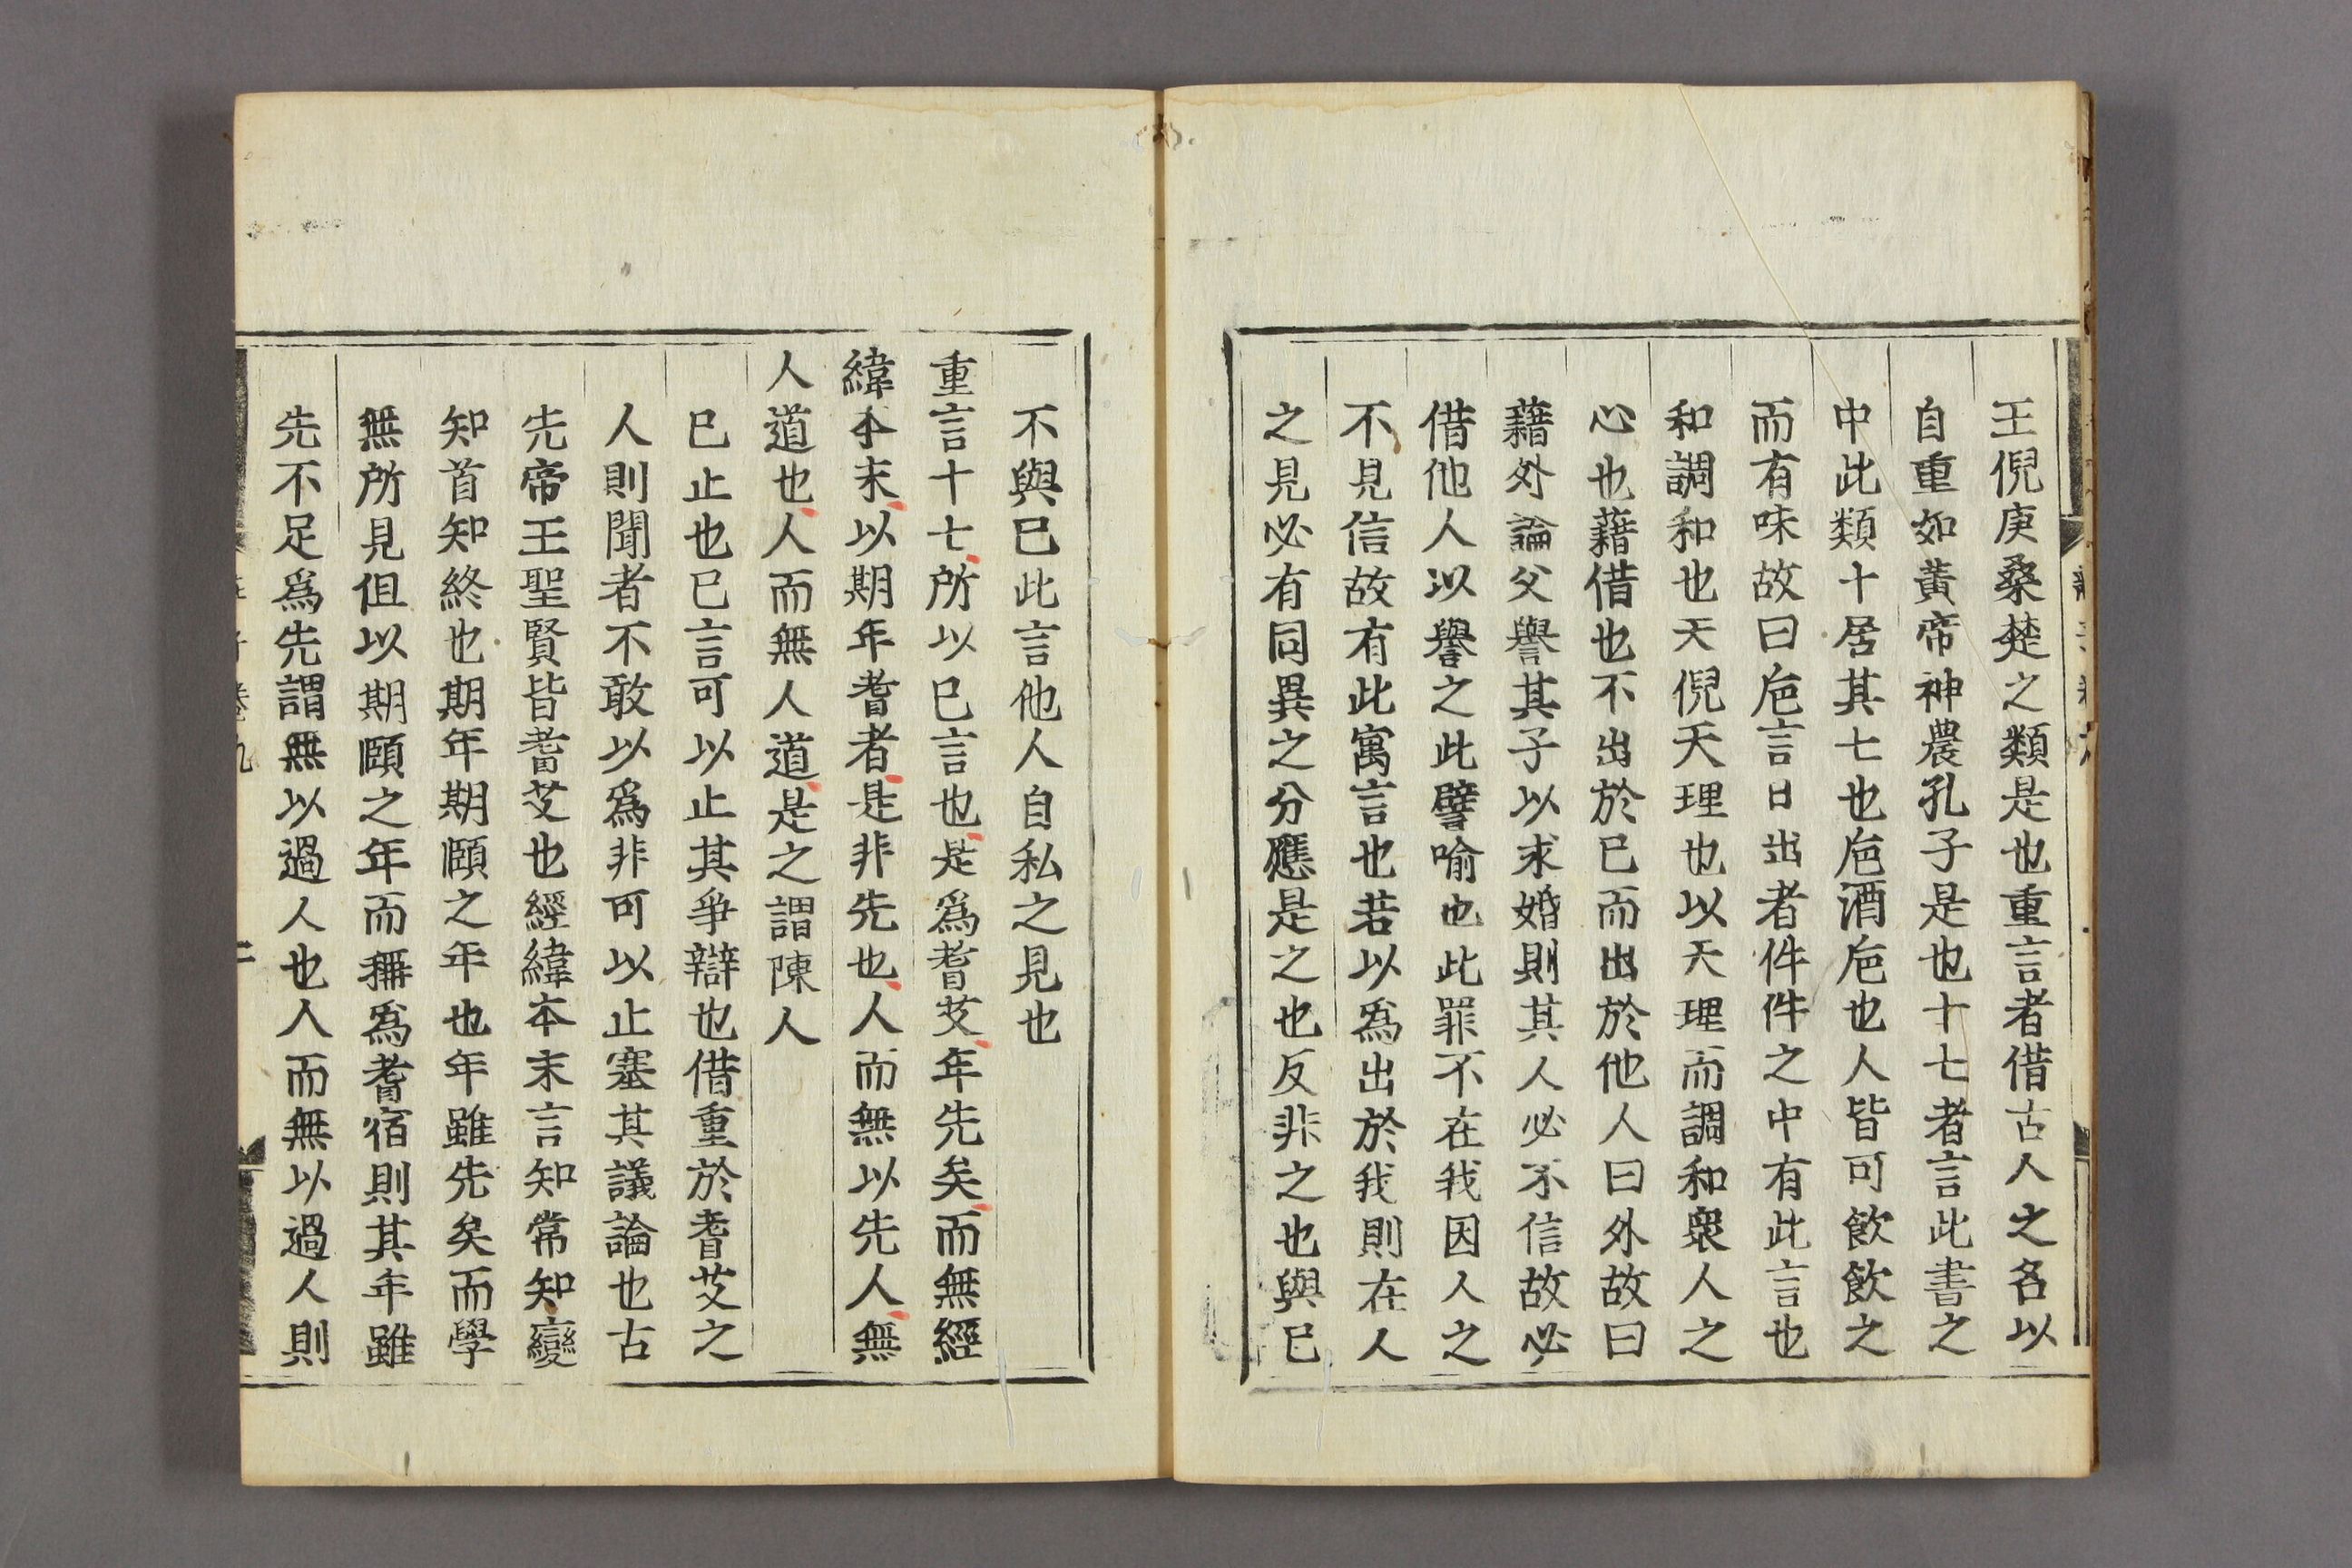 王倪庚桑楚之類是也重言者借古人之名以
自重如黃帝神農孔子是也十七者言此書之
中此類十居其七也巵酒巵也人皆可飲飲之
而有味故曰巵言日出者件件之中有此言也
和調和也天倪天理也以天理而調和衆人之
心也藉借也不出於已而出於他人曰外故曰
藉外論父譽其子以求婚則其人必不信故必
借他人以譽之此譬喻也此罪不在我因人之
不見信故有此寓言也若以為出於我則在人
之見必有同異之分應是之也反非之也與已
不與已此言他人自私之見也
重言十七所以已言也是爲耆艾年先矣而無經
緯本末以期年耆者是非先也人而無以先人無
人道也人而無人道是之謂陳人
已止也已言可以止其爭辯也借重於耆艾之
人則聞者不敢以爲非可以止塞其議論也古
先帝王聖賢皆耆艾也經緯本末言知常知變
知首知終也期年期頤之年也年雖先矣而學
無所見但以期頤之年而稱爲耆宿則其年雖
先不足爲先謂無以過人也人而無以過人則